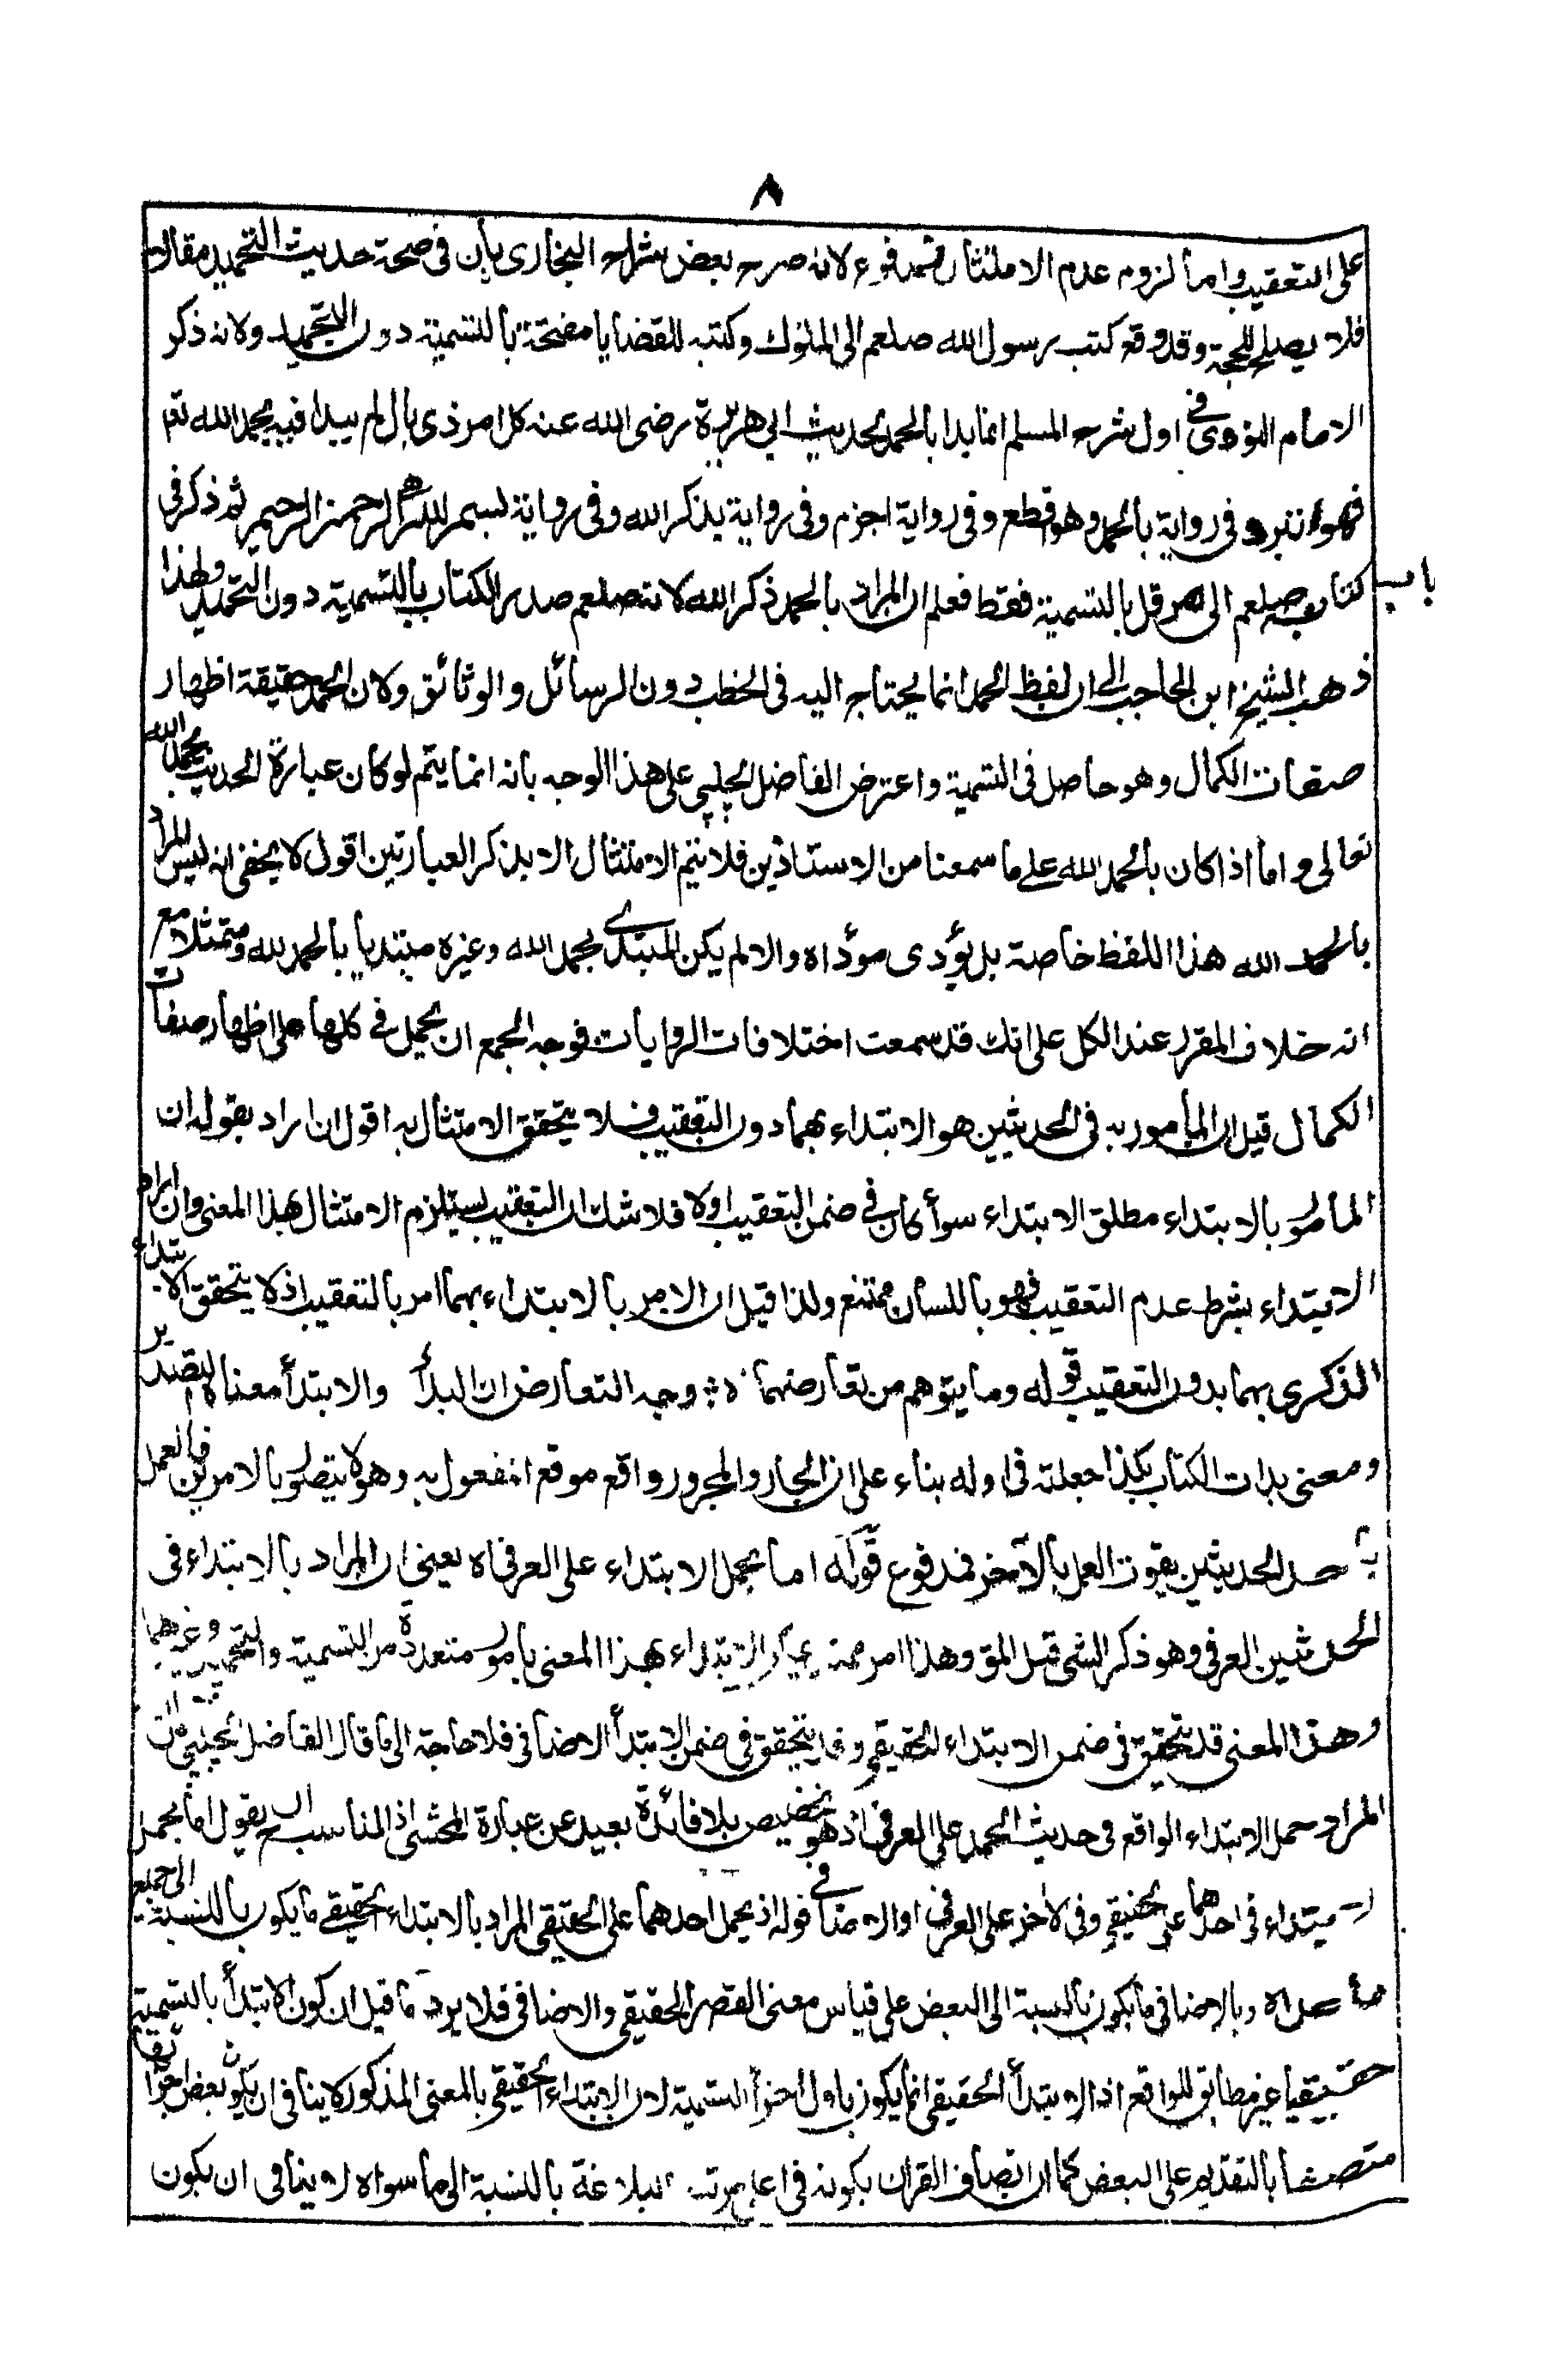 ٨
على التعقيب واما لزوم عدم الامتثال فمدفوع لانه صرح بعض شراح البخارى بأن فى صحة حديث التحميد مقالا
فلا يصلح للحجة وقد وقع كتب رسول الله صلعم الى الملوك وكتبه للقضايا مفتحة بالتسمية دون التحميد ولانه ذكر
الامام النووى فى اول شرح المسلم انما بدا بالحمد لحديث ابي هريرة رضى الله عنه كل امر ذى بال لم يبدا فيه بحمد الله تعم
فهو ابتر وفى رواية بالحمد وهو اقطع وفى رواية اجزم وفى رواية بذكر الله وفى رواية ببسم الله الرحمن الرحيم ثم ذكر فى
باب كتابه صلعم الى هرقل بالتسمية فقط فعلم ان المراد بالحمد ذكر الله لانه صلعم صدر الكتاب بالتسمية دون التحميد ولهذا
ذهب الشيخ ابن الحاجب الى ان لفظ الحمد انما يحتاج اليه فى الخطب دون الرسائل والوثائق ولان الحمد حقيقة اظهار
صفات الكمال وهو حاصل فى التسمية واعترض الفاضل الچلپى على هذا الوجه بانه انما يتم لو كان عبارة الحديث بحمد الله
تعالى واما اذا كان بالحمد الله على ما سمعنا من الاستاذين فلا يتم الامتثال الا بذكر العبارتين اقول لا يخفى انه ليس المراد
بالحمد الله هذا اللفظ خاصة بل يؤدى مؤداه والا لم يكن المبتدى بحمد الله وغيره مبتديا بالحمد لله ومتمثلا مع
انه خلاف المقرر عند الكل على انك قد سمعت اختلافات الروايات فوجه الجمع ان يحمل فى كلها على اظهار صفات
الكمال قيل ان المأمور به فى الحديثين هو الابتداء بهما دون التعقيب فلا يتحقق الامتثال به اقول ان اراد بقوله ان
المأمور بالابتداء مطلق الابتداء سوأ كان فى ضمن التعقيب اولا فلا شك ان التعقيب يستلزم الامتثال بهذا المعنى وان اراد
الابتداء بشرط عدم التعقيب فهو باللسان ممتنع ولذا قيل ان الامر بالابتداء بهما امر بالتعقيب اذ لا يتحقق الابتداء
الذكرى بهما بدون التعقيب قوله وما يتوهم من تعارضهما اه وجه التعارض ان البدأ والابتدأ معناه التصدير
ومعنى بدات الكتاب بكذا جعلته فى اوله بناء على ان الجار والمجرور واقع موقع المفعول به وهو لا يتصور بالامرين فالعمل
باحد الحديثين يفوت العمل بالآخر فمدفوع قوله اما بحمل الابتداء على العرفى اه يعنى ان المراد بالابتداء فى
الحديثين العرفى وهو ذكر الشى قبل المق وهذا امر ممتد يمكن الابتداء بهذا المعنى بامور متعددة من التسمية والتحميد وغيرهما
وهذا المعنى قد يتحقق فى ضمن الابتداء الحقيقى وقد يتحقق فى ضمن الابتدأ الاضافى فلا حاجة الى ما قال الفاضل الچلپى ان
المراد حمل الابتداء الواقع فى حديث الحمد على العرفى اذ هو تخصيص بلا فائدة بعيد عن عبارة المحشى اذ المناسب ان يقول اما بحمل
الابتداء فى احدهما على الحقيقى وفى الاخر على العرفى او الاضافى قوله اذ يحمل احدهما على الحقيقى المراد بالابتداء الحقيقى ما يكون بالنسبة الى جميع
ما عداه وبالاضافى ما يكون بالنسبة الى البعض على قياس معنى القصر الحقيقى والاضافى فلا يرد ما قيل ان كون الابتدأ بالتسمية
حقيقيا غير مطابق للواقع اذ الابتدأ الحقيقى انما يكون باول اجزأ التسمية لان الابتداء الحقيقى بالمعنى المذكور لا ينافى ان يكون بعض اجزائها
متصفا بالتقديم على البعض كما ان اتصاف القران بكونه فى اعلى مرتبة البلاغة بالنسبة الى ما سواه لا ينافى ان يكون